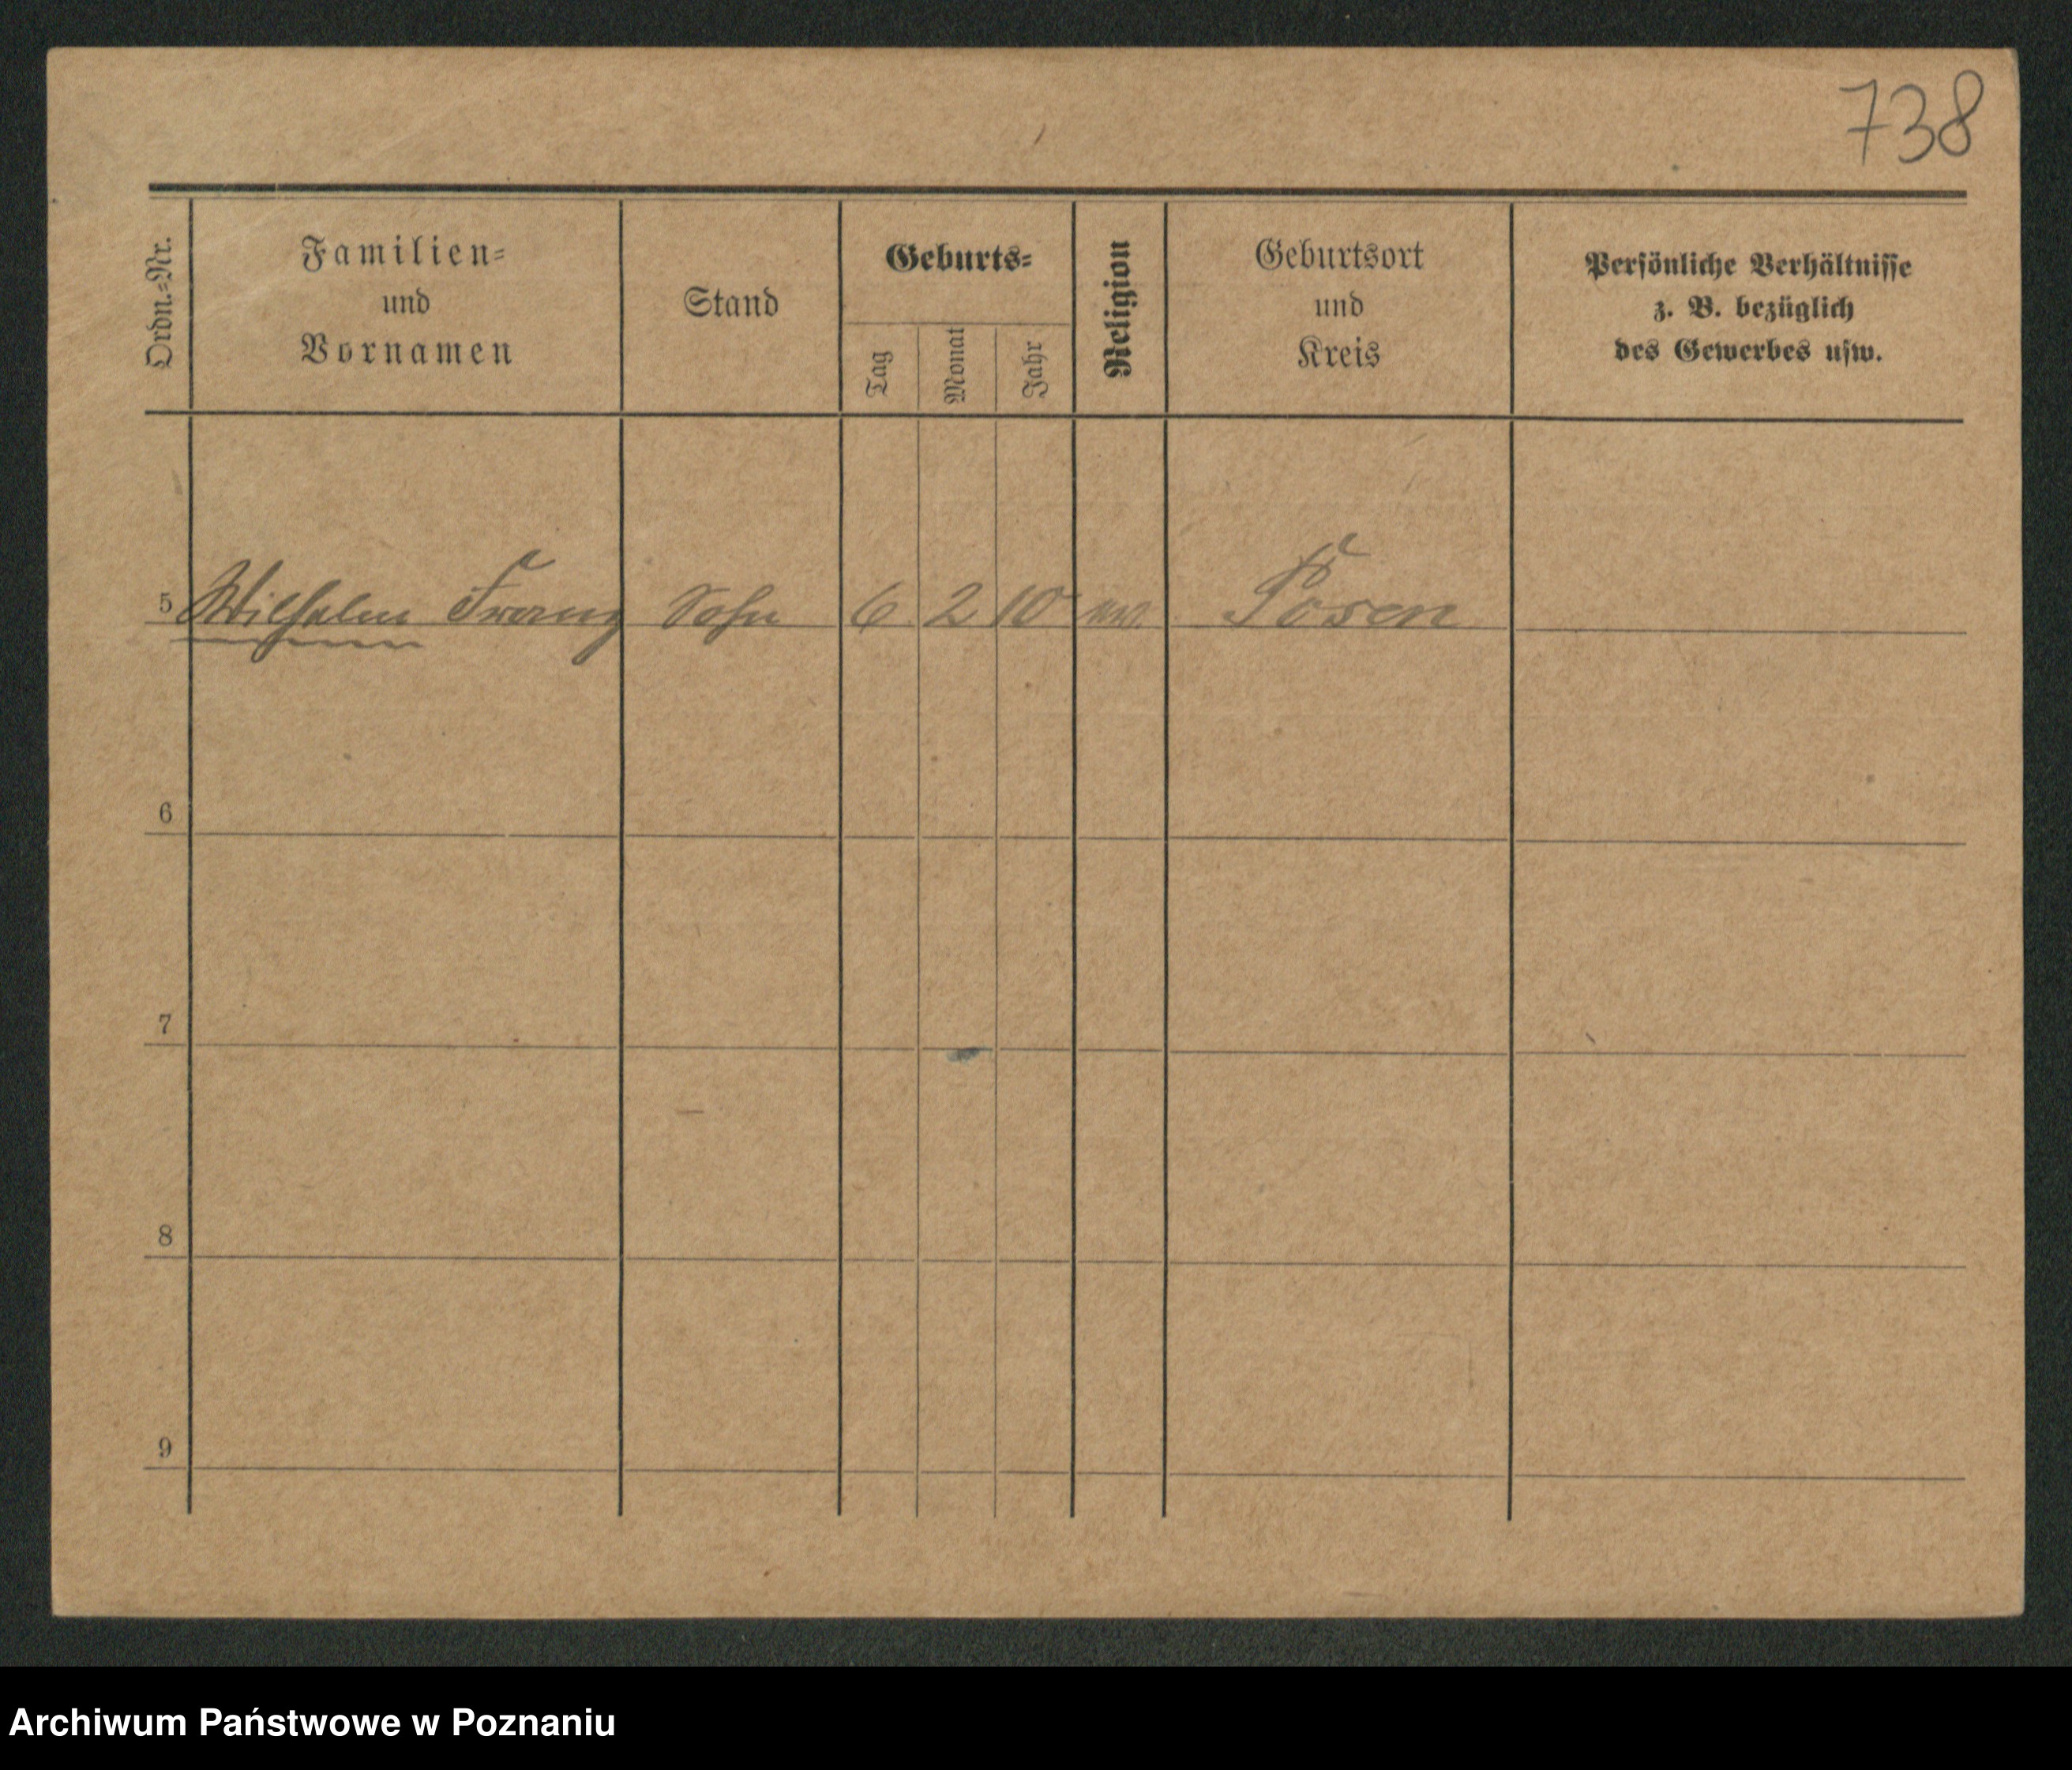 738
Ordn.-Nr.
Familien-
und
Vornamen
Stand
Geburts-
Tag
Monat
Jahr
Religion
Geburtsort
und
Kreis
Persönliche Verhältnisse
z. B. bezüglich
des Gewerbes usw.
5 Wilhelm Franz Sohn 6 2 10 Posen
6
7
8
9
Archiwum Państwowe w Poznaniu